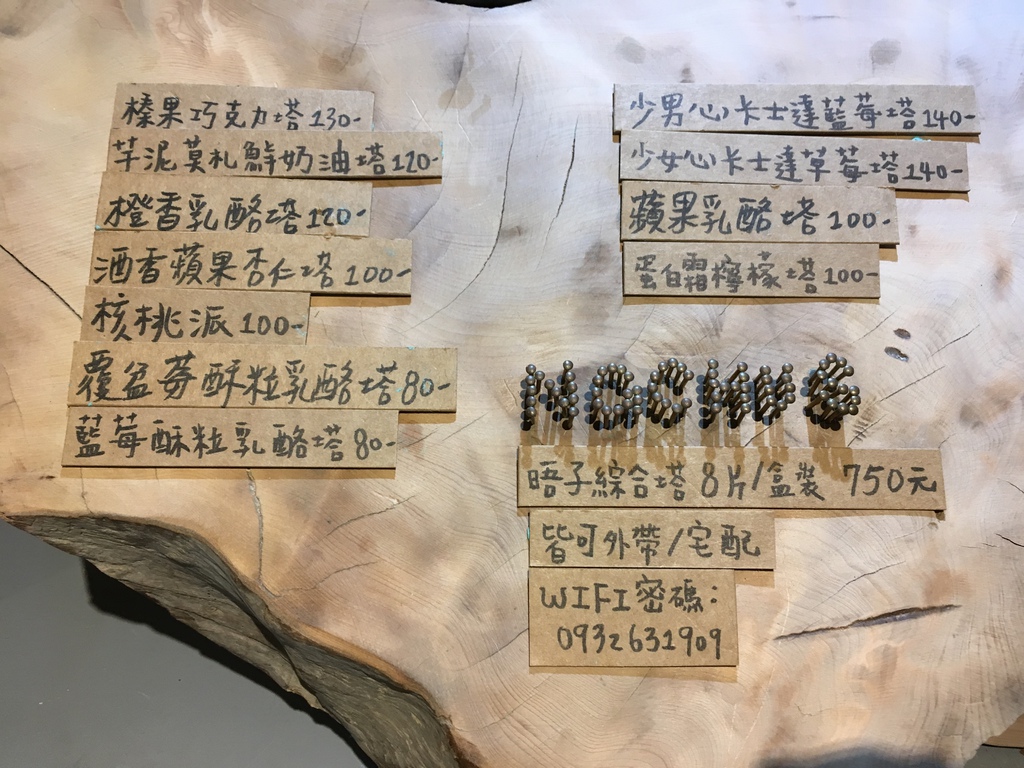 榛果巧克力塔130-
芋泥莫札鮮奶油塔120-
橙香乳酪塔120-
酒香蘋果杏仁塔100-
核桃派100-
覆盆莓酥粒乳酪塔80-
藍莓酥粒乳酪塔80-
少男心卡士達藍莓塔140-
少女心卡士達草莓塔140-
蘋果乳酪塔100-
蛋白霜檸檬塔100-
晤子綜合塔 8片/盒裝 750元
皆可外帶/宅配
WIFI密碼:
0932631909